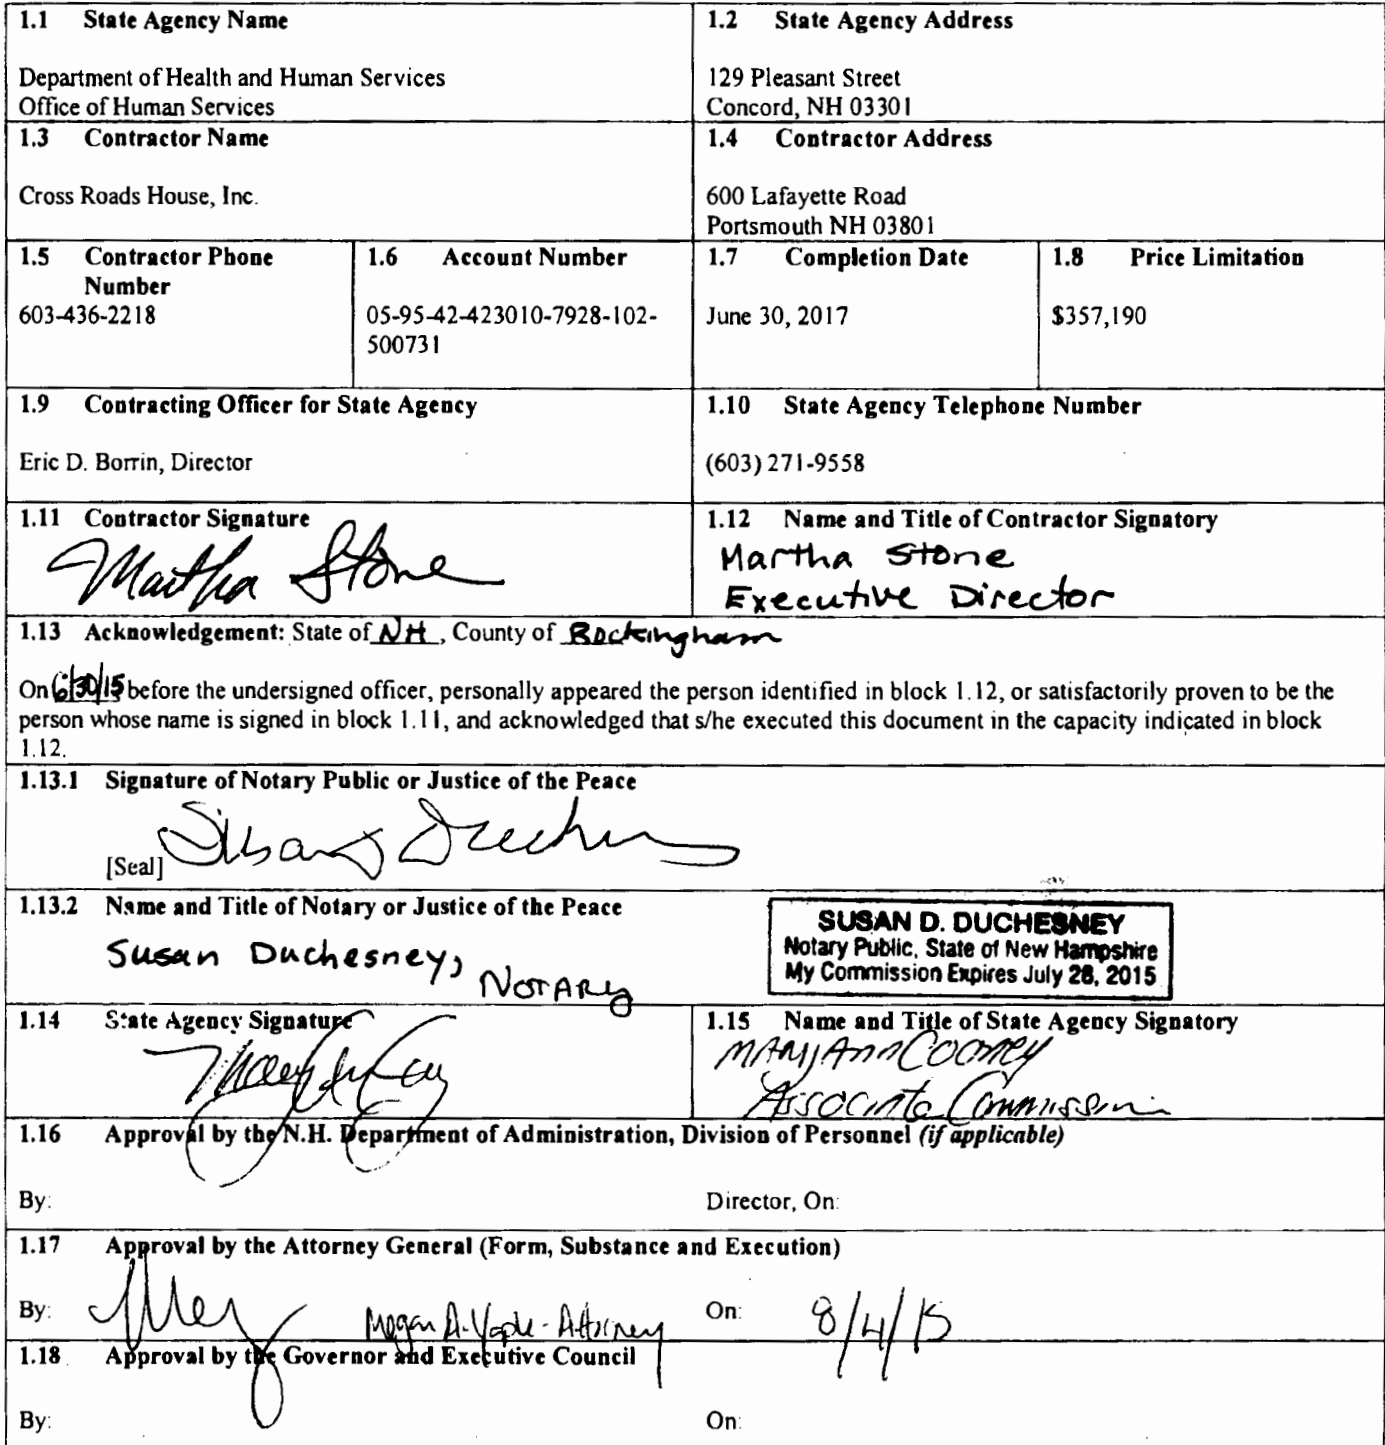 1.1 State Agency Name
Department of Health and Human Services
Office of Human Services
1.2 State Agency Address
129 Pleasant Street
Concord, NH 03301
1.3 Contractor Name
Cross Roads House, Inc.
1.4 Contractor Address
600 Lafayette Road
Portsmouth NH 03801
1.5 Contractor Phone
Number
603-436-2218
1.6 Account Number
05-95-42-423010-7928-102-
500731
1.7 Completion Date
June 30, 2017
1.8 Price Limitation
$357,190
1.9 Contracting Officer for State Agency
Eric D. Borrin, Director
1.10 State Agency Telephone Number
(603) 271-9558
1.11 Contractor Signature
Martha Stone
1.12 Name and Title of Contractor Signatory
Martha Stone
Executive Director
1.13 Acknowledgement: State of NH, County of Rockingham
On 6/30/15 before the undersigned officer, personally appeared the person identified in block 1.12, or satisfactorily proven to be the
person whose name is signed in block 1.11, and acknowledged that s/he executed this document in the capacity indicated in block
1.12.
1.13.1 Signature of Notary Public or Justice of the Peace
[Seal]
1.13.2 Name and Title of Notary or Justice of the Peace
Susan Duchesney, Notary
SUSAN D. DUCHESNEY
Notary Public, State of New Hampshire
My Commission Expires July 28, 2015
1.14 State Agency Signature
1.15 Name and Title of State Agency Signatory
Mary Ann Cooney
Associate
1.16 Approval by the N.H. Department of Administration, Division of Personnel (if applicable)
By: Director, On:
1.17 Approval by the Attorney General (Form, Substance and Execution)
By: Megan A. - Attorney On: 8/4/15
1.18 Approval by the Governor and Executive Council
By: On: